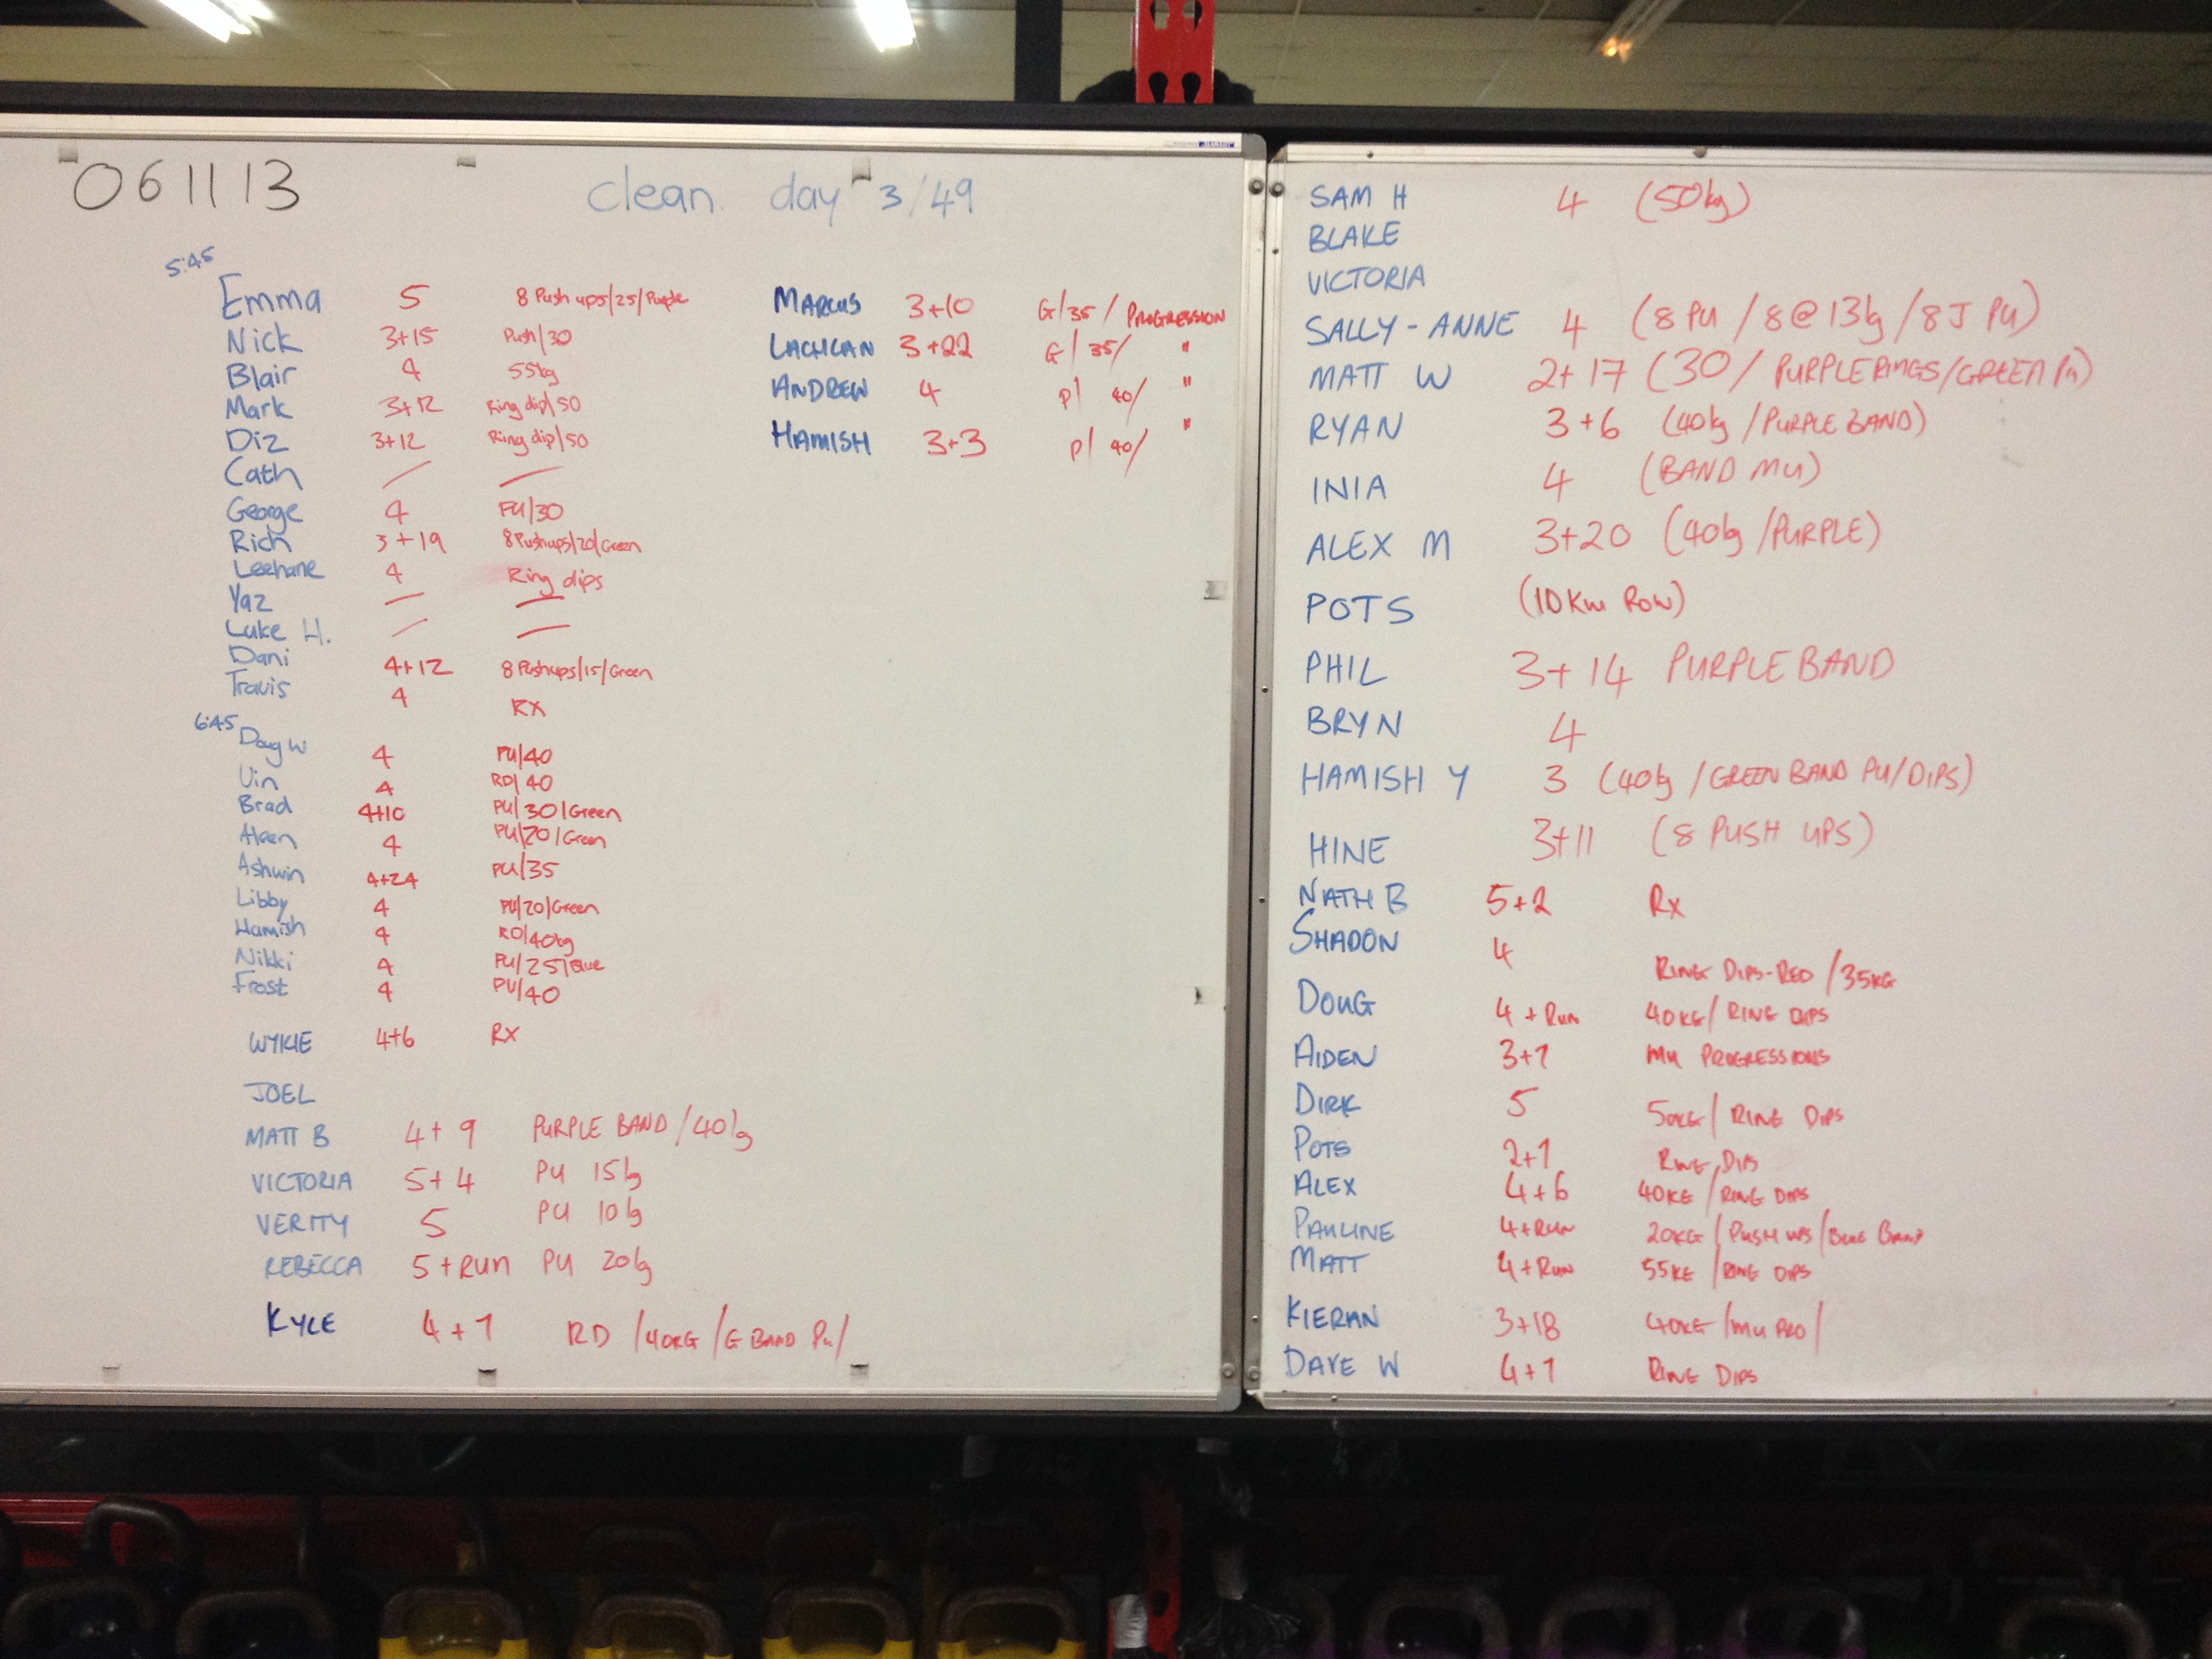 061113 clean day 3/49
5:45
Emma 5 8 Push ups/25/Purple
Nick 3+15 Push/30
Blair 4 55kg
Mark 3+12 Ring dip/50
Diz 3+12 Ring dip/50
Cath
George 4 PU/30
Rich 3+19 8 Pushups/20/Green
Leehane 4 Ring dips
Yaz
Luke H.
Dani 4+12 8 Pushups/15/Green
Travis 4 RX
6:45
Doug W 4 PU/40
Vin 4 RD/40
Brad 4+10 PU/30/Green
Aleen 4 PU/20/Green
Ashwin 4+24 PU/35
Libby 4 PU/20/Green
Hamish 4 RD/40kg
Nikki 4 PU/25/Blue
Frost 4 PU/40
WYKIE 4+6 RX
JOEL
MATT B 4+9 PURPLE BAND/40kg
VICTORIA 5+4 PU 15kg
VERITY 5 PU 10kg
REBECCA 5+RUN PU 20kg
KYLE 4+1 RD/40KG/G BAND PU/
MARCUS 3+10 G/35/PROGRESSION
LACHLAN 3+22 G/35/ "
ANDREW 4 P/40/ "
HAMISH 3+3 P/40/ "
SAM H 4 (50kg)
BLAKE
VICTORIA
SALLY-ANNE 4 (8 PU/8@13kg/8 J PU)
MATT W 2+17 (30/PURPLE RINGS/GREEN PU)
RYAN 3+6 (40kg/PURPLE BAND)
INIA 4 (BAND MU)
ALEX M 3+20 (40kg/PURPLE)
POTS (10Km ROW)
PHIL 3+14 PURPLE BAND
BRYN 4
HAMISH Y 3 (40kg/GREEN BAND PU/DIPS)
HINE 3+11 (8 PUSH UPS)
NATH B 5+2 Rx
SHADON 4 RING DIPS-RED/35KG
DOUG 4+RUN 40KG/RING DIPS
AIDEN 3+1 MU PROGRESSIONS
DIRK 5 50KG/RING DIPS
POTS 2+1 RING DIPS
ALEX 4+6 40KG/RING DIPS
PAULINE 4+RUN 20KG/PUSH UPS/BLUE BAND
MATT 4+RUN 55KG/RING DIPS
KIERAN 3+18 40KG/MU PRO/
DAVE W 4+1 RING DIPS